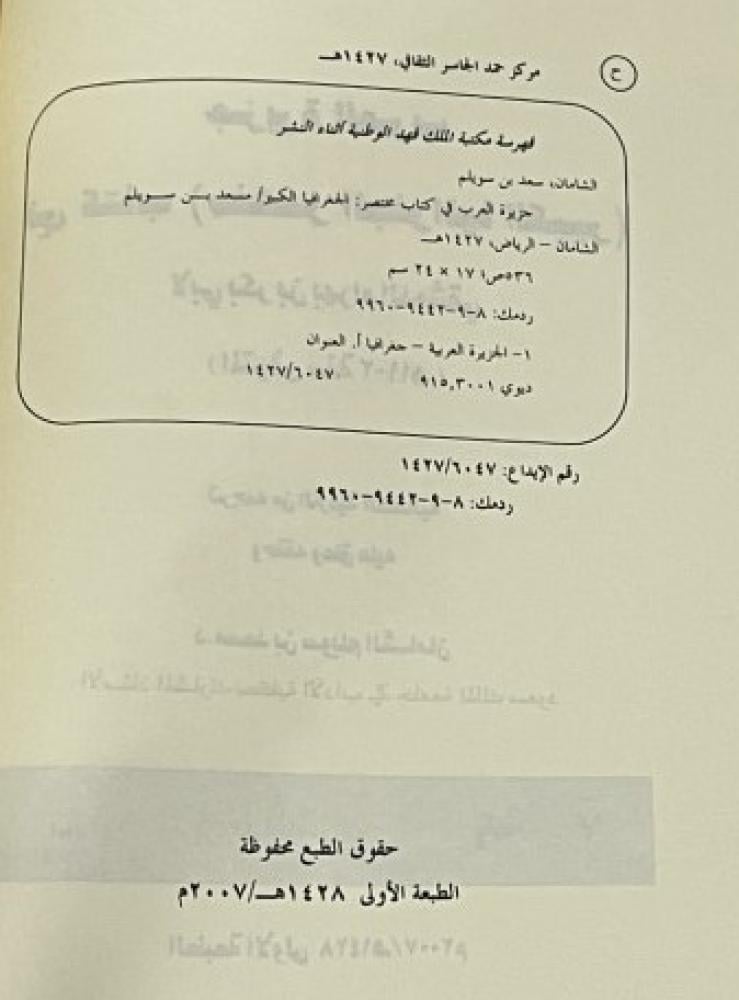 ح مركز حمد الجاسر الثقافي، ١٤٢٧هـ
فهرسة مكتبة الملك فهد الوطنية أثناء النشر
الشامان، سعد بن سويلم
جزيرة العرب في كتاب مختصر الجغرافيا الكبير/ مسعد بن سويلم
الشامان – الرياض، ١٤٢٧هـ
٥٣٦ص؛ ١٧ × ٢٤ سم
ردمك: ٨-٩-٩٤٤٢-٩٩٦٠
١- الجزيرة العربية – جغرافيا أ. العنوان
ديوي ٩١٥,٣٠٠١ ١٤٢٧/٦٠٤٧
رقم الإيداع: ١٤٢٧/٦٠٤٧
ردمك: ٨-٩-٩٤٤٢-٩٩٦٠
حقوق الطبع محفوظة
الطبعة الأولى ١٤٢٨هـ/٢٠٠٧م